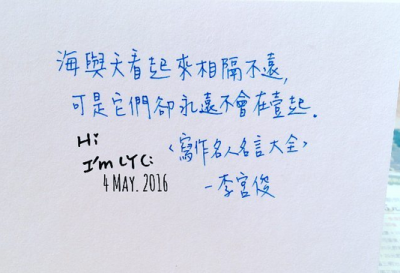 海與天看起來相隔不遠,
可是它們卻永遠不會在壹起.
Hi
I'm LYC:
<寫作名人名言大全>
4 MAY. 2016
-李宮俊